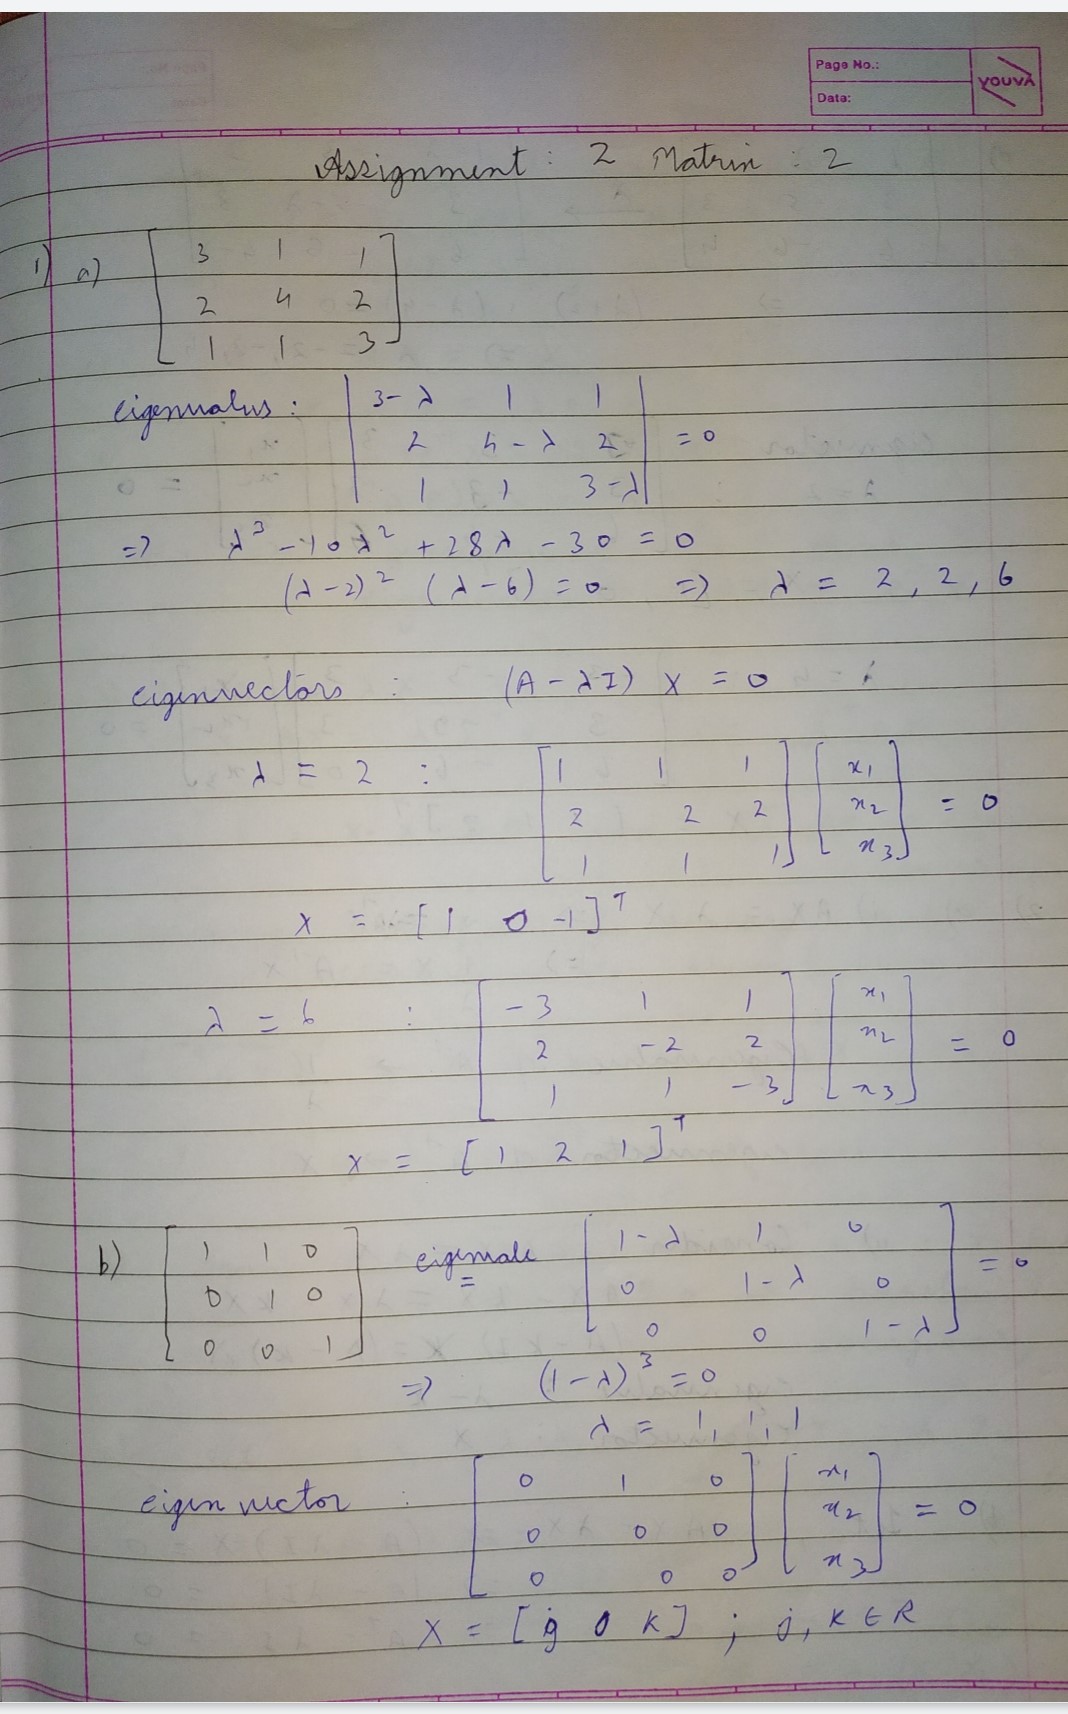 Page No.:
Date:
YOUVA
Assignment : 2 Matrix : 2
1) a) [ 3 1 1
2 4 2
1 1 3 ]
eigenvalus : | 3-λ 1 1
2 4-λ 2
1 1 3-λ | = 0
=> λ³ - 10λ² + 28λ - 30 = 0
(λ-2)² (λ-6) = 0 => λ = 2, 2, 6
eigenvectors : (A - λI) X = 0
λ = 2 : [ 1 1 1
2 2 2
1 1 1 ] [ x₁
x₂
x₃ ] = 0
X = [ 1 0 -1 ]ᵀ
λ = 6 : [ -3 1 1
2 -2 2
1 1 -3 ] [ x₁
x₂
x₃ ] = 0
X = [ 1 2 1 ]ᵀ
b) [ 1 1 0
0 1 0
0 0 1 ]
eigenvale = [ 1-λ 1 0
0 1-λ 0
0 0 1-λ ] = 0
=> (1-λ)³ = 0
λ = 1, 1, 1
eigen vector : [ 0 1 0
0 0 0
0 0 0 ] [ x₁
x₂
x₃ ] = 0
X = [ j 0 k ] ; j, k ∈ R